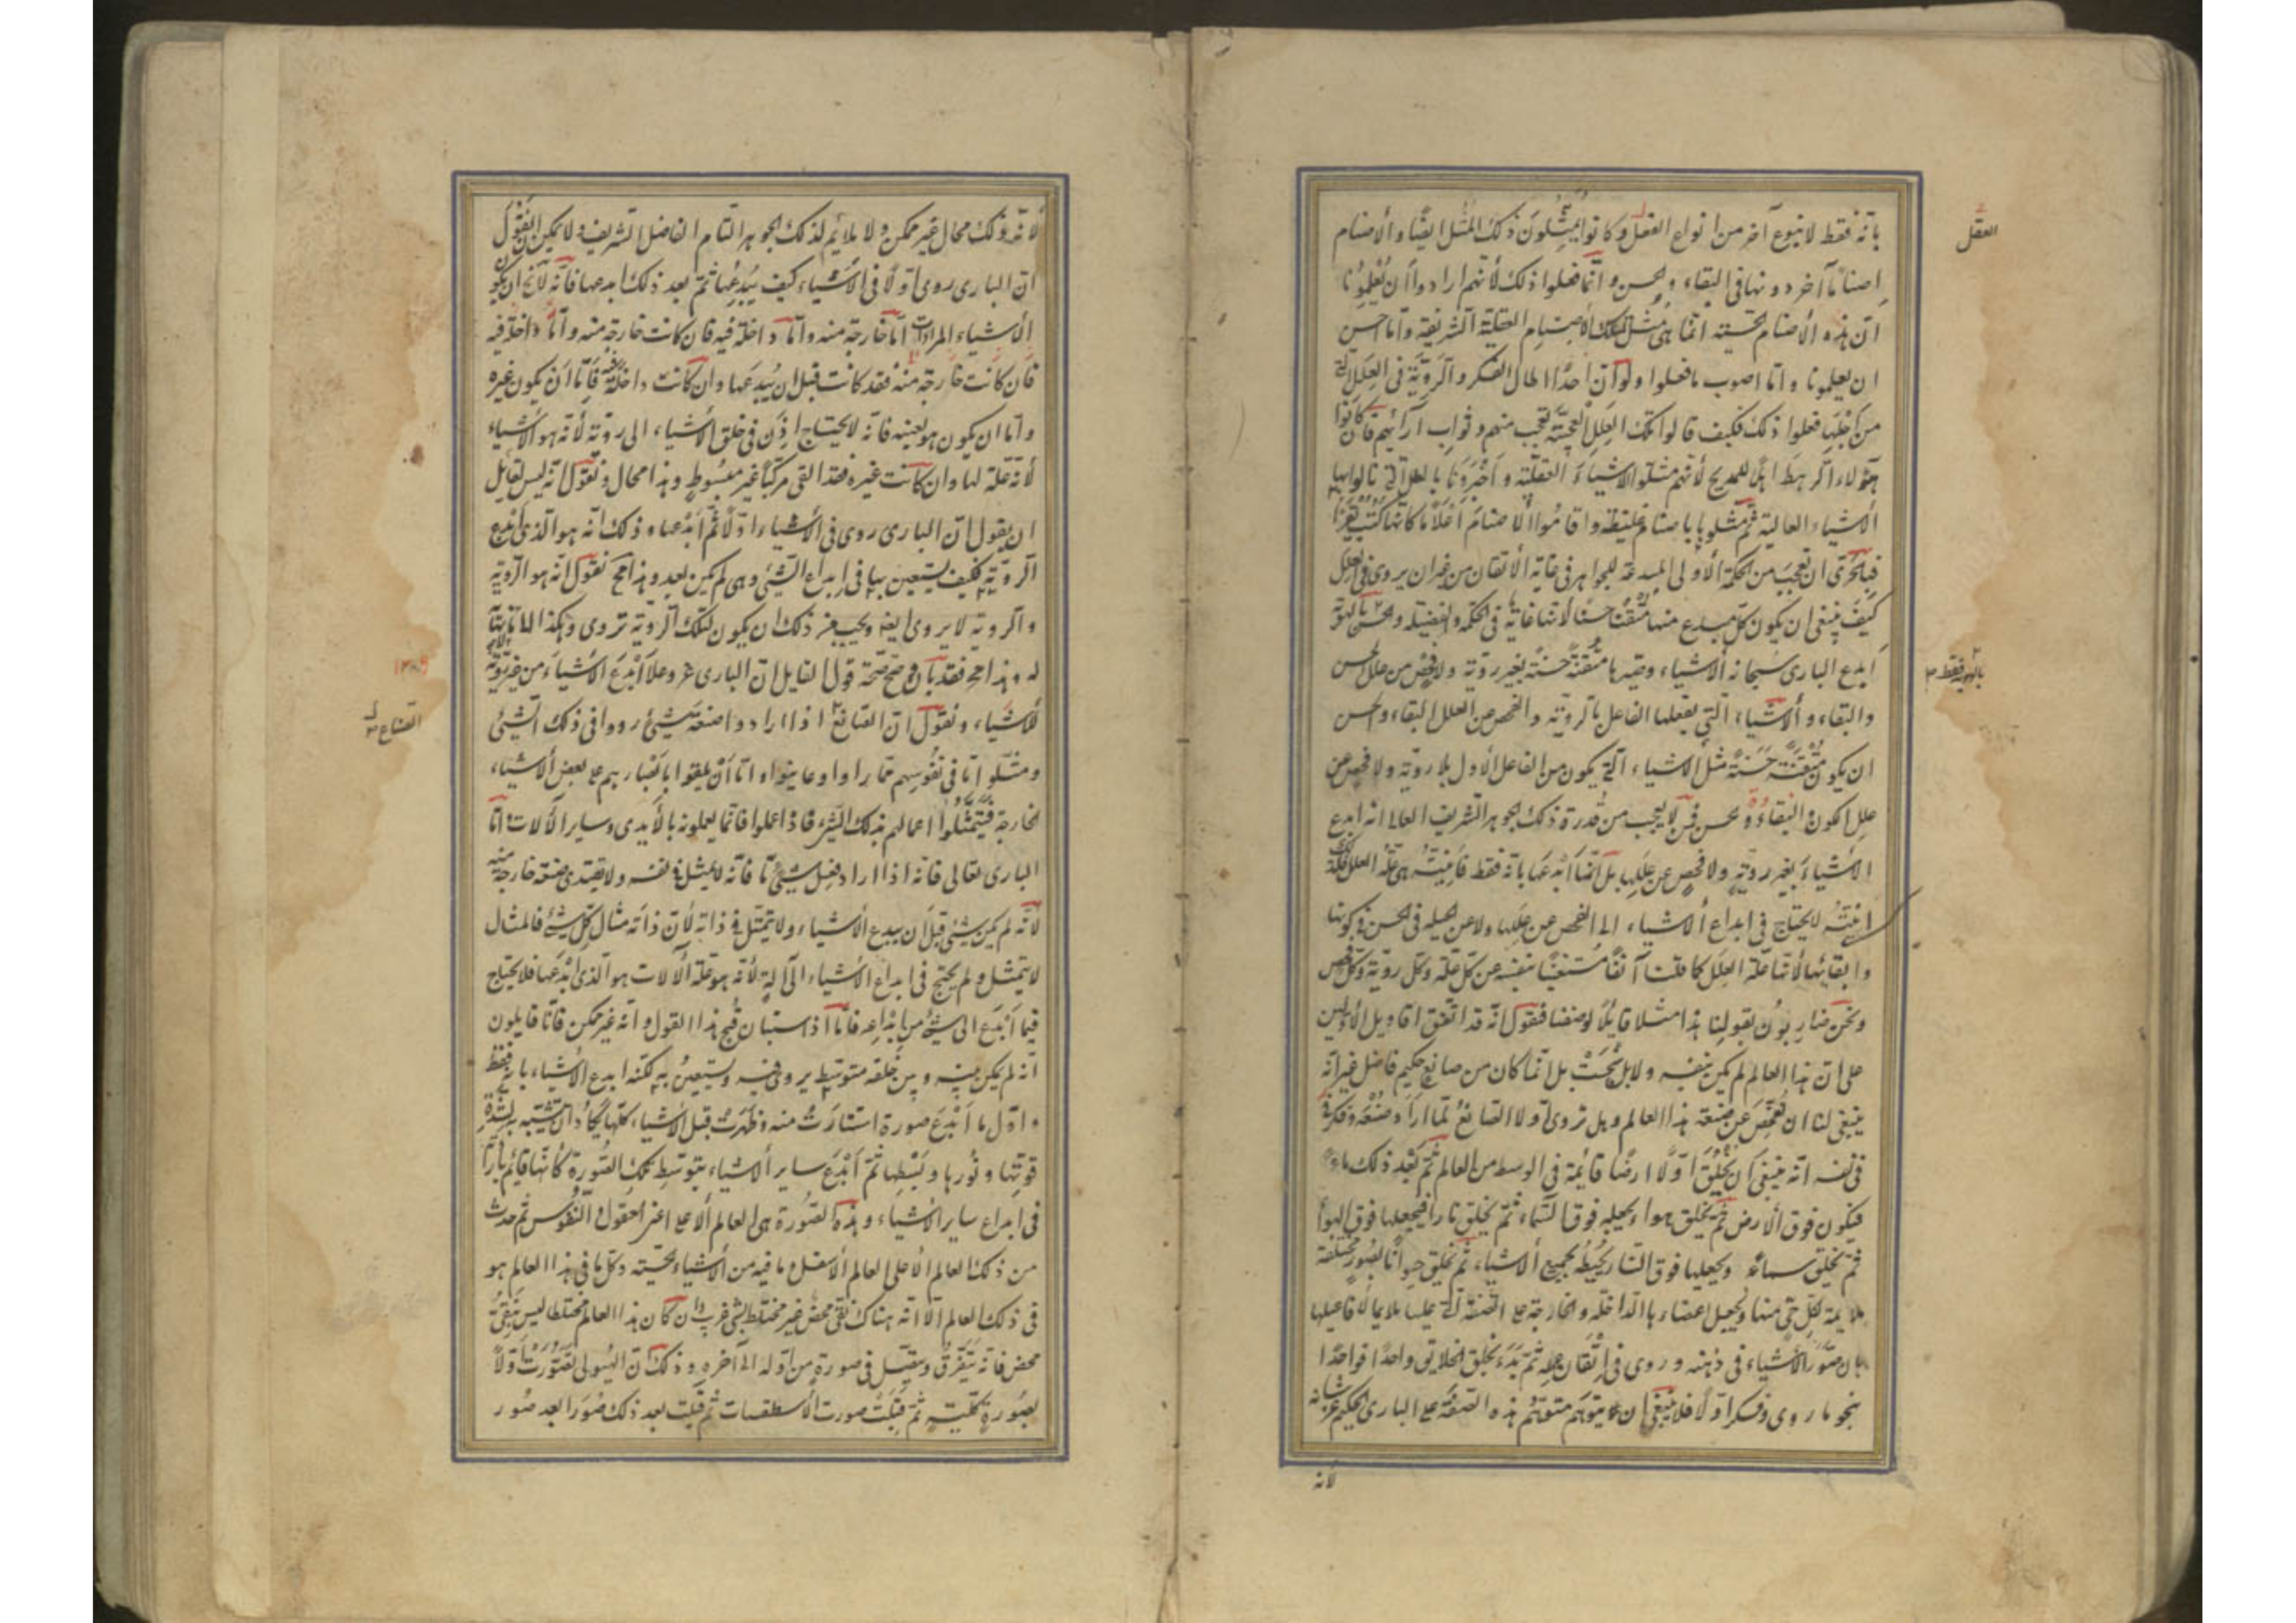 بانه فقط لا بنوع آخر من انواع العقل وكانوا يمثلون ذلك المثل ايضا والاصنام
العقل
اصناما آخر دونها فى البقاء والحسن وانما فعلوا ذلك لأنهم ارادوا أن يعلمونا
ان هذه الأصنام الحسية انما هى مثل لتلك الأصنام العقلية الشريفة وما احسن
ان يعلمونا وما اصوب ما فعلوا ولو ان احدا اطال الفكر والروية فى العلل التى
من اجلها فعلوا ذلك فكيف قالوا تلك العلل العجيبة لعجب منهم وثواب آرائهم فان كانوا
هؤلاء الرهط اهلا للمديح لأنهم مثلوا الاشياء العقلية واخبرونا بالعلل التى نالوا بها
الأشياء العالية ثم مثلوها باصنام غليظة واقاموا الأصنام اعلاما كأنها كتب تقرأ
فبالحرى ان نعجب من الحكمة الأولى المبدعة للجواهر فى غاية الأتقان من غير ان يروى فى العلل
كيف ينبغى ان يكون كل مبدع منها متقنا حسنا لأنها غاية فى الحكمة والفضيلة والحسن بالهوية
بالهوية فقط
ابدع البارى سبحانه الأشياء وصيرها متقنة حسنة بغير روية ولا فحص من علل الحسن
والبقاء والأشياء التى يفعلها الفاعل بالروية والفحص من العلل البقاء والحسن
ان يكون متقنة حسنة مثل الأشياء التى يكون من الفاعل الأول بلا روية ولا فحص من
علل الكون والبقاء والحسن فمن لا يعجب من قدرة ذلك الجوهر الشريف العالى انه ابدع
الأشياء بغير روية ولا فحص عن عللها بل انما ابدعها بانه فقط فأنيته هى علة العلل فلذلك
انيته لا يحتاج فى ابداع الأشياء الى الفحص عن عللها ولا عن الحيلة فى الحسن فى كونها
وابقائها لأنها علة العلل كما قلنا آنفا مستغنيا بنفسه عن كل علة وكل روية وكل فحص
ونحن ضاربون بقولنا هذا مثلا قابلا لوصفنا فنقول انه قد اتفق اقاويل الأولين
على ان هذا العالم لم يكن بنفسه ولا بل بخت بل انما كان من صانع حكيم فاضل غير انه
ينبغى لنا ان نفحص عن صنعة هذا العالم وهل تروى أولا الصانع لما اراد صنعه وفكر
فى نفسه انه ينبغى ان يخلق أولا ارضا قائمة فى الوسط من العالم ثم بعد ذلك ماء
فيكون فوق الأرض ثم يخلق هواء ويجعله فوق الماء ثم يخلق نارا فيجعلها فوق الهواء
ثم يخلق سماء ويجعلها فوق النار محيطة بجميع الأشياء ثم يخلق حيوانا بصور مختلفة
ملايمة لكل حى منها ويجعل اعضاءها الداخلة والخارجة على الصفة التى عليها ملايمة لأفاعيلها
بان صور الأشياء فى ذهنه وروى فى اتقان عمله ثم بدء بخلق الخلايق واحدا فواحدا
بنحو ما روى وفكر أولا فلا ينبغى ان يتوهم متوهم هذه الصفة على البارى الحكيم عز شانه
لأنه
لأنه ذلك محال غير ممكن ولا ملائم لذلك الجوهر التام الفاضل الشريف ولا يمكن ان نقول
ان البارى روى أولا فى الأشياء كيف يبدعها ثم بعد ذلك ابدعها فانه لا يخ ان يكون
الأشياء المرادات اما خارجة منه واما داخلة فيه فان كانت خارجة منه واما داخلة فيه
فان كانت خارجة منه فقد كانت قبل ان يبدعها وان كانت داخلة فيه فاما ان يكون غيره
واما ان يكون هو بعينه فانه لا يحتاج اذن فى خلق الأشياء الى روية لأنه هو الأشياء
لأنه علة لها وان كانت غيره فقد القى مركبا غير مبسوط وهذا محال ونقول انه ليس لقايل
ان يقول ان البارى روى فى الأشياء أولا ثم ابدعها وذلك انه هو الذى ابدع
الروية فكيف يستعين بها فى ابداع الشىء وهى لم يكن بعد وهذا مح نقول انه هو الروية
والروية لا يروى ايضا ويجب من ذلك ان يكون لتلك الروية تروى وهكذا الى ما لا نهاية
له وهذا مح فقد بان وصح صحة قول القايل ان البارى عز وعلا ابدع الأشياء من غير روية
١٢٨٩
للأشياء ونقول ان الصناع اذا ارادوا صنعة شىء رووا فى ذلك الشىء
الصناع
ومثلوا ما فى نفوسهم مما راوا وعاينوا واما ان يلقوا بابصارهم على بعض الأشياء
الخارجة فيتمثلوا اعمالهم بذلك الشىء فاذا عملوا فانما يعملونه بالأيدى وساير الآلات واما
البارى تعالى فانه اذا اراد فعل شىء ما فانه لا يمثل فى نفسه ولا يقتدى صنعة خارجة منه
لأنه لم يكن شىء قبل ان يبدع الأشياء ولا يتمثل فى ذاته لأن ذاته مثال كل شىء فالمثال
لا يتمثل ولم يحتج فى ابداع الأشياء الى آلة لأنه هو علة الآلات هو الذى ابدعها فلا يحتاج
فيما ابدع الى شىء من ابداعه فاما اذ استبان قبح هذا القول وانه غير ممكن فانا قايلون
انه لم يكن بينه وبين خلقه متوسط يروى فيه ويستعين به لكنه ابدع الأشياء بانه فقط
وأول ما ابدع صورة استنارت منه وظهرت قبل الأشياء كلها يكاد ان تتشبه به لشدة
قوتها ونورها وبسطها ثم ابدع ساير الأشياء بتوسط تلك الصورة كأنها قائمة بارادته
فى ابداع ساير الأشياء وهذه الصورة هى العالم الأعلى اعنى العقول والنفوس ثم حدث
من ذلك العالم الأعلى العالم الأسفل وما فيه من الأشياء الحسية وكل ما فى هذا العالم هو
فى ذلك العالم الا انه هناك نقى محض غير مختلط بشىء غريب وان كان هذا العالم مختلطا ليس بنقى
محض فانه يتفرق ويتصل فى صورة من أوله الى آخره وذلك ان الهيولى تصورت أولا
بصورة كلية ثم قبلت صورت الأسطقسات ثم قبلت بعد ذلك صورا بعد صور